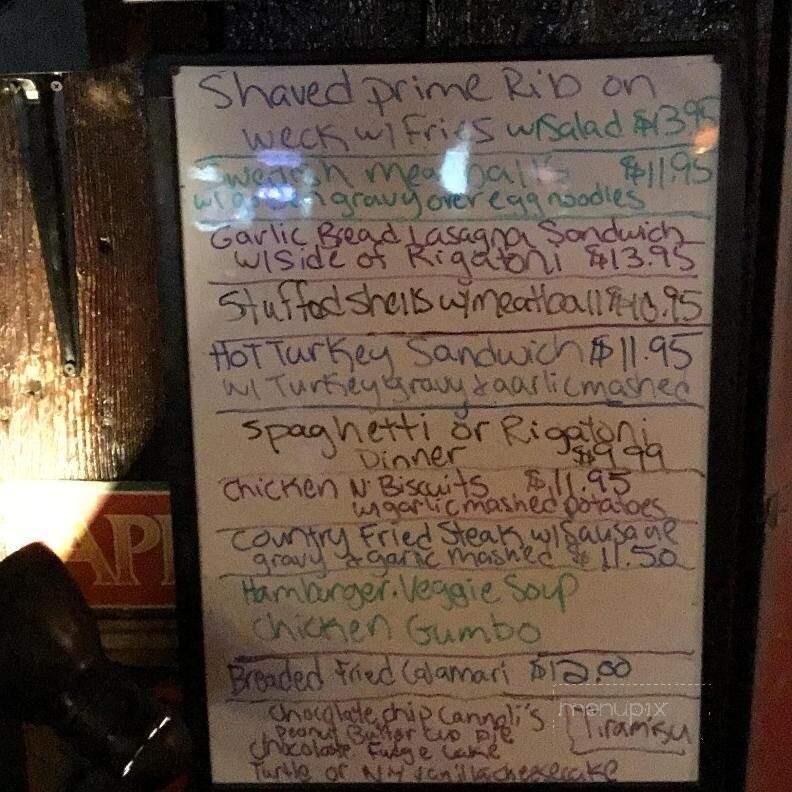 Shaved prime Rib on
weck w/Fries w/salad $13.95
Swedish meatballs $11.95
w/ gravy over egg noodles
Garlic Bread Lasagna Sandwich
w/side of Rigatoni $13.95
Stuffed shells w/meatball $10.95
Hot Turkey Sandwich $11.95
w/ Turkey gravy & garlic mashed
Spaghetti or Rigatoni
Dinner $9.99
Chicken N' Biscuits $11.95
w/garlic mashed potatoes
Country Fried Steak w/Sausage
gravy & garlic mashed $11.50
Hamburger. Veggie Soup
Chicken Gumbo
Breaded Fried Calamari $12.00
Chocolate chip Cannoli's
Peanut Butter cup pie
Chocolate Fudge Cake
Turtle or NY vanilla cheesecake
Tiramisu
menupix
API